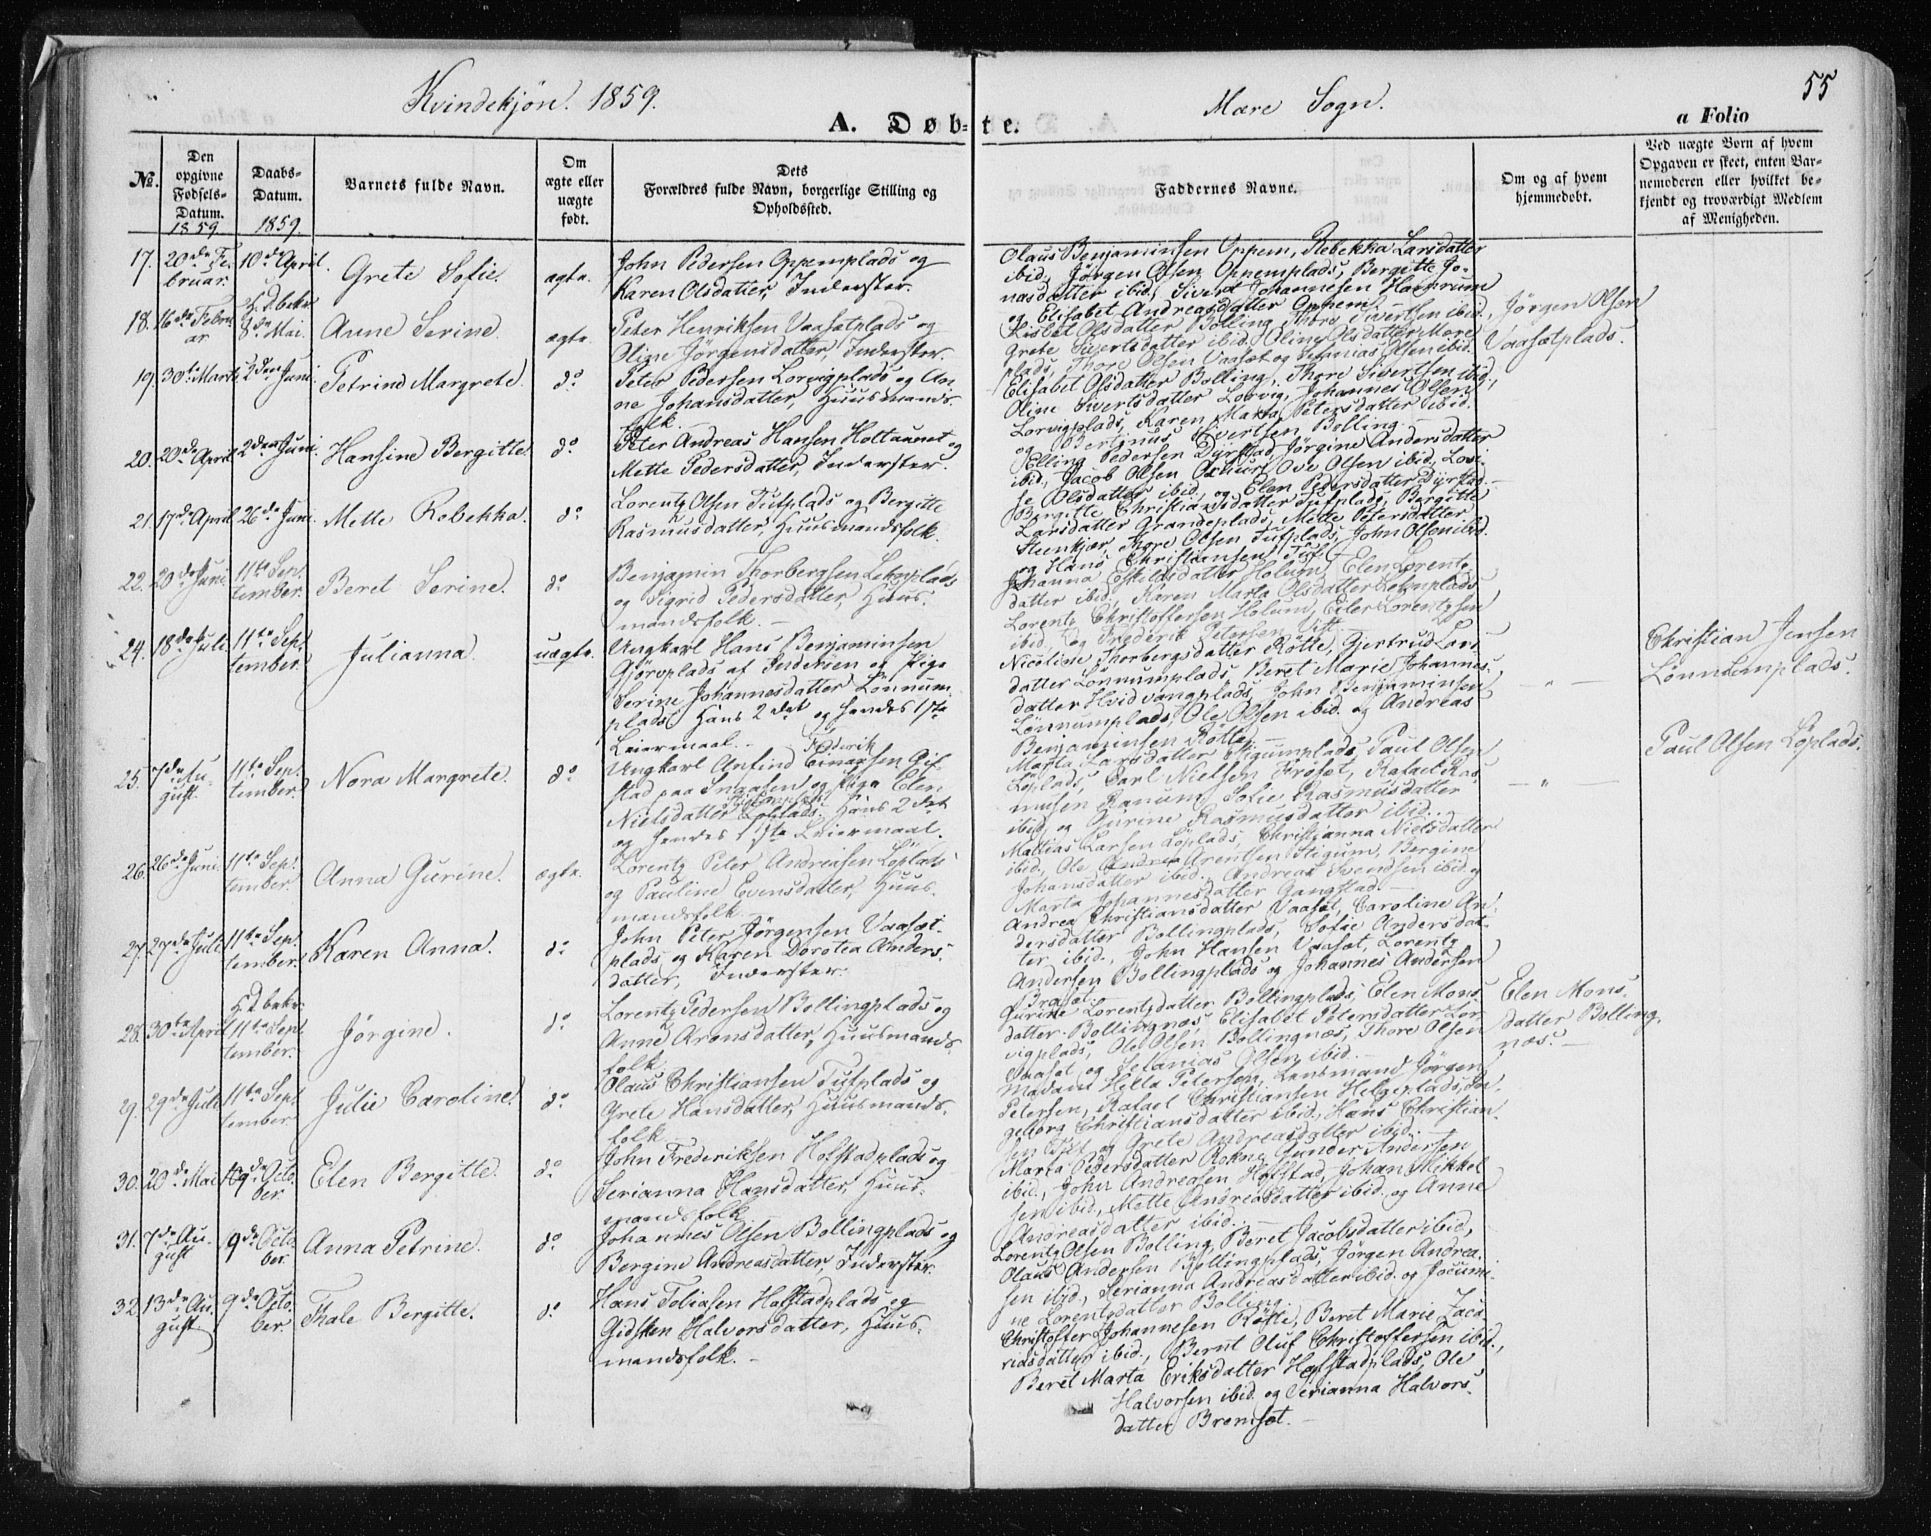 Kvindekjön. 1859.
Mære Sogn.
55
A. Døb-
te.
a Folio
No.
Den opgivne Fødsels-Datum. 1859
Daabs-Datum. 1859.
Barnets fulde Navn.
Om ægte eller uægte født.
Dets Forældres fulde Navn, borgerlige Stilling og Opholdssted.
Faddernes Navne.
Om og af hvem hjemmedøbt.
Ved uægte Børn af hvem Opgaven er skeet, enten Barnemoderen eller hvilket bekjendt og troværdigt Medlem af Menigheden.
17.
20de Fe-
bruar.
10de April.
Grete Sofie.
ægte.
John Pedersen Oppemplads og
Karen Olsdatter, Inderster.
Olaus Benjaminsen Oppem, Rebekka Larsdatter
ibid, Jørgen Olsen Oppemplads, Bergitte Jo-
nasdatter ibid, Sivert Johannesen
og Elisabet Andreasdatter Oppem.
18.
16de Febru
ar
8de Mai.
Anne Serine.
ægte.
Peter Henriksen Vaasætplads og
Oline Jörgensdatter, Inderster.
Lisbet Olsdatter Bolling, Thore Sivertsen ibid.,
Grete Sivertsdatter ibid, Oline Olsdatter Mære
plads, Thore Olsen Vaasæt og Setanias Olsen ibid.
Jörgen Olsen
Vaasætplads.
19.
30te Marts
2den Juni.
Petrine Margrete.
do
Peter Pedersen Lorvigplads og An-
ne Johansdatter, Huusmands-
folk.
Elisabet Olsdatter Bolling, Thore Sivertsen ibid,
Oline Sivertsdatter Lorvig, Johannes Olsen
Lorvigplads, Karen Marta Petersdatter ibid.
og Bertinus Evertsen Bolling.
20.
20de April
2den Juni.
Hansine Bergitte.
do
Peter Andreas Hansen Holtaunet og
Mette Pedersdatter, Inderster.
Elling Pedersen Dyrstad, Jörgine Andersdatter
ibid, Jacob Olsen Oxnurs, Ove Olsen ibid, Lovi-
se Olsdatter ibid, og Elen Pedersdatter Dyrstad.
21.
17de April
26de Juni.
Mette Rebekka.
do
Lorents Olsen Tufplads og Bergitte
Rasmusdatter, Huusmandsfolk.
Birgitte Christiansdatter Tufplads, Bergitte
Larsdatter Grandeplads, Mette Petersdatter
Steenkjær, Thore Olsen Tufplads, John Olsen ibid.
og Hans Christiansen Tuf.
22.
20de Juni
11te Sep-
tember.
Beret Serine.
do
Benjamin Thorbergsen Leknplads
og Sigrid Pedersdatter, Huus-
mandsfolk.
Johanna Eskildsdatter Holum, Elen Lorents-
datter ibid, Karen Marta Olsdatter Leknplads
Lorents Christoffersen Holum, Eiler Lorentzsen
ibid, og Frederik Petersen Vitt.
24.
18de Juli
11te Sep-
tember.
Julianna.
uægte.
Ungkarl Hans Benjaminsen
Gjörvplads af Inderöen og Pige
Serine Johannesdatter Lönnum-
plads. Hans 2det og hendes 1ste
Leiermaal.
Nicoline Thorbergsdatter Rötte, Gjertrud Lars-
datter Lönnumplads, Beret Marie Johannes-
datter Hvidvangplads, John Benjaminsen
Lönnumplads, Ole Olsen ibid. og Andreas
Benjaminsen Rötte.
Christian Jensen
Lönnumplads.
25.
7de Au-
gust.
11te Sep-
tember.
Nora Margrete.
do
Ungkarl Anfind Frederik Einarsen Gif-
stad paa Ingaasen og Pige Elen
Nielsdatter Löplads. Hans 2det
og hendes 1ste Leiermaal.
Marta Larsdatter Stigumplads, Paul Olsen
Löplads, Carl Nielsen Frösæt, Rafael Ras-
mussen Ranum, Sofie Rasmusdatter
ibid. og Gurine Rasmusdatter ibid.
Paul Olsen Löplads.
26.
26de Juni.
11te Sep-
tember.
Anna Gurine.
ægte.
Lorentz Peter Andreasen Löplads
og Pauline Evensdatter, Huus-
mandsfolk.
Mattias Larsen Löplads, Christianna Nielsdatter
ibid, Ole Andreas Arentsen Stigum, Bergine
Johansdatter ibid, Andreas Svendsen ibid og
Marta Johannesdatter Gangstad.
27.
27de Juli
11te Sep-
tember.
Karen Anna.
do
John Peter Jörgensen Vaasæt-
plads og Karen Dorotea Anders-
datter, Inderster.
Andrea Christiansdatter Vaasæt, Caroline An-
dersdatter Bollingplads, Sofie Andersdat-
ter ibid., John Hansen Vaasæt, Lorents
Andersen Bollingplads og Johannes Andersen
Braset.
28.
30te April
11te Sep-
tember.
Jörgine.
do
Lorents Pedersen Bollingplads og
Anne Aronsdatter, Huusmands-
folk.
Gurine Lorentsdatter Bollingplads, Elen Mons-
datter Bollingnæs, Elisabet Petersdatter Lor-
vigplads, Ole Olsen Bollingnæs, Thore Olsen
Vaasæt og Setanias Olsen ibid.
Elen Mons-
datter Bolling-
næs.
29.
29de Juli
11te Sep-
tember.
Julie Caroline.
do
Olaus Christiansen Tufplads og
Grete Hansdatter, Huusmands-
folk.
Madame Hella Petersen, Lensmand Jörgen
Petersen, Rafael Christiansen Helgeplads, In-
geborg Christiansdatter ibid, Hans Christian-
sen Tuf og Grete Andreasdatter ibid.
30.
20de Mai
9de Octo-
ber.
Elen Bergitte.
do
John Frederiksen Hofstadplads og
Serianna Hansdatter, Huus-
mandsfolk.
Marta Pedersdatter Rokne, Gunder Andersen
ibid., John Andreasen Hofstad, Johan Mikkel-
sen ibid, Mette Andreasdatter ibid. og Anne
Andreasdatter ibid.
31.
7de Au-
gust
9de Octo-
ber.
Anna Petrine.
do
Johannes Olsen Bollingplads og
Bergine Andreasdatter, Inderster.
Lorentz Olsen Bolling, Beret Jacobsdatter ibid,
Olaus Andersen Bollingplads, Jörgen Andrea-
sen ibid, Serianna Andreasdatter ibid. og Jocumi-
ne Lorentsdatter Bolling.
32.
13de Au-
gust
9de Octo-
ber.
Thale Bergitte.
do
Hans Tobiasen Hofstadplads og
Gidsken Halvorsdatter, Huus-
mandsfolk.
Christoffer Johannesen Rötte, Beret Marie Zaca-
riasdatter ibid., Bernt Oluf Christoffersen ibid.,
Beret Marta Eriksdatter Hofstadplads, Ole
Halvorsen ibid. og Serianna Halvors-
datter Bremset.